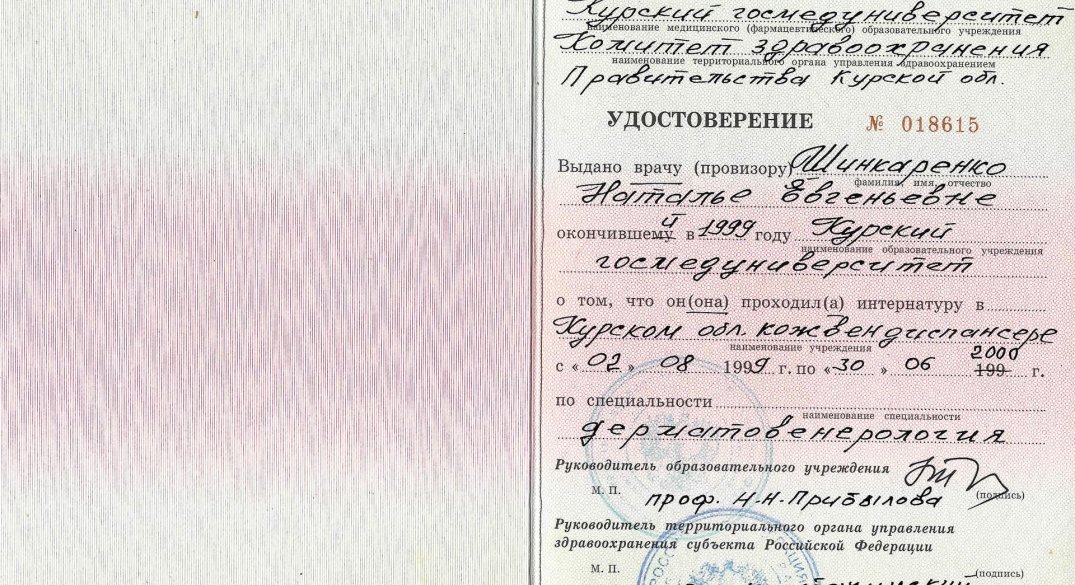 Курский госмедуниверситет
наименование медицинского (фармацевтического) образовательного учреждения
Комитет здравоохранения
наименование территориального органа управления здравоохранением
Правительства Курской обл.
УДОСТОВЕРЕНИЕ № 018615
Выдано врачу (провизору) Шинкаренко
фамилия, имя, отчество
Наталье Евгеньевне
окончившему й в 1999 году Курский
наименование образовательного учреждения
госмедуниверситет
о том, что он(она) проходил(а) интернатуру в
Курском обл. кожвендиспансере
наименование учреждения
с « 02 » 08 1999 г. по « 30 » 06 2000 199 г.
по специальности
наименование специальности
дерматовенерология
Руководитель образовательного учреждения
М. П. проф. Н.Н.Прибылова (подпись)
Руководитель территориального органа управления
здравоохранения субъекта Российской Федерации
М. П. (подпись)